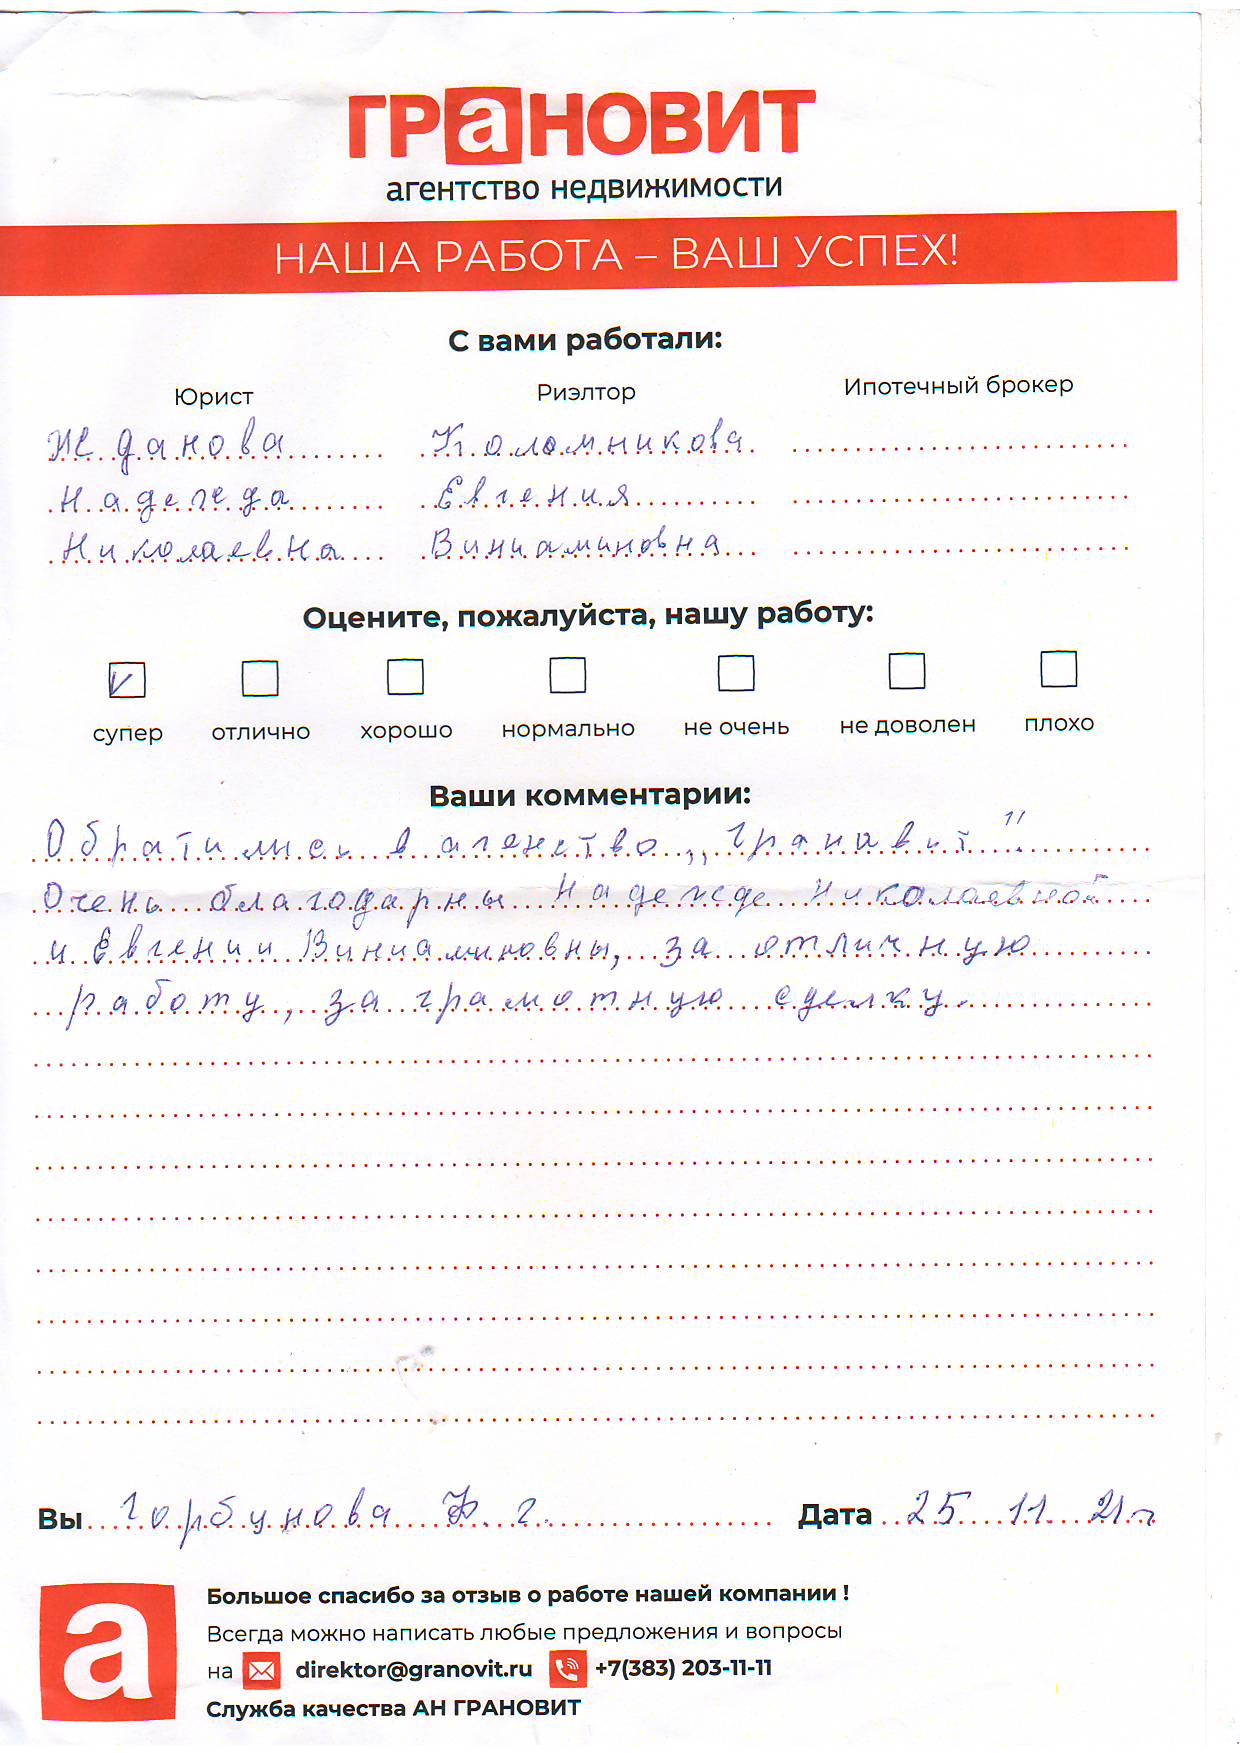 ГРаНОВИТ
агентство недвижимости
НАША РАБОТА – ВАШ УСПЕХ!
С вами работали:
Юрист Риэлтор Ипотечный брокер
Жданова Коломникова
Надежда Евгения
Николаевна Виниаминовна
Оцените, пожалуйста, нашу работу:
супер отлично хорошо нормально не очень не доволен плохо
Ваши комментарии:
Обратились в агенство „Грановит".
Очень благодарны Надежде Николаевной
и Евгении Виниаминовны, за отличную
работу, за грамотную сделку.
Вы Горбунова Ф. г. Дата 25 11. 21г
а
Большое спасибо за отзыв о работе нашей компании !
Всегда можно написать любые предложения и вопросы
на direktor@granovit.ru +7(383) 203-11-11
Служба качества АН ГРАНОВИТ